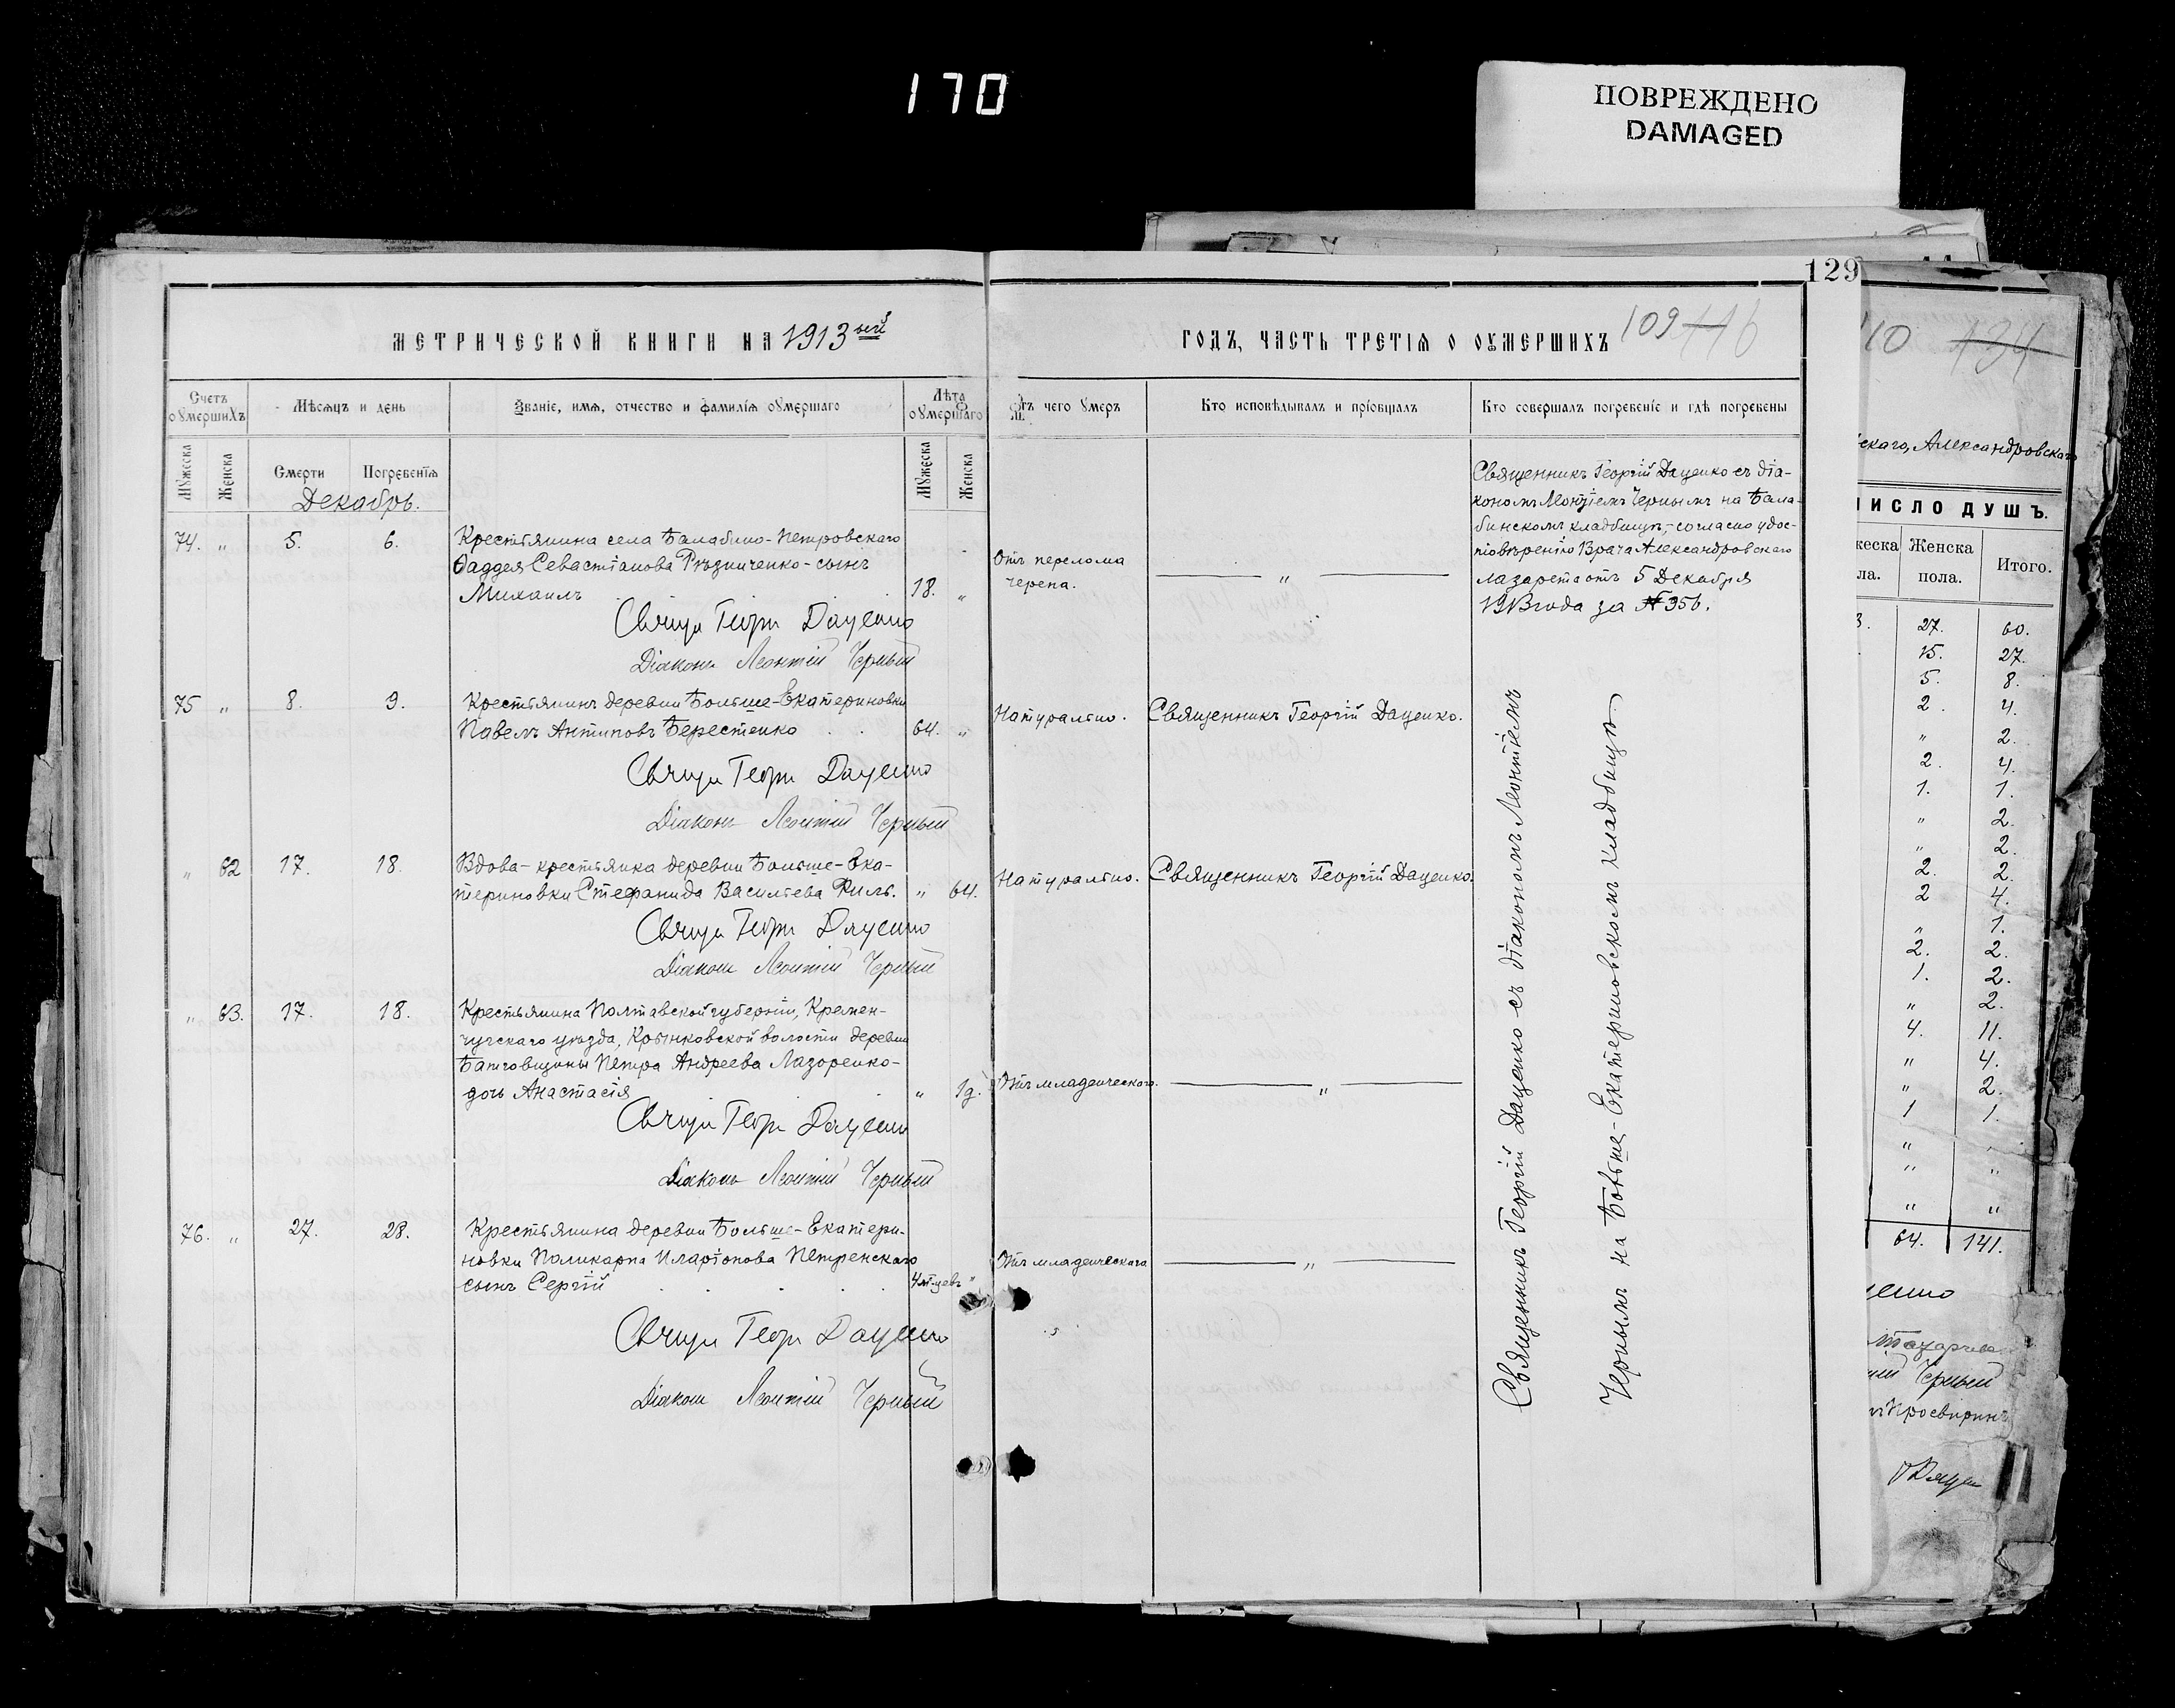 170
ПОВРЕЖДЕНО
DAMAGED
129
МЕТРИЧЕСКОЙ КНИГИ НА 1913 ый
ГОДЪ, ЧАСТЬ ТРЕТІѦ О ОУМЕРШИХЪ
109 116
110 134
Счетъ оумершихъ
Мѣсяцъ и день
Званіе, имя, отчество и фамилія оумершаго
Лѣта оумершаго
Отъ чего умеръ
Кто исповѣдывалъ и пріобщалъ
Кто совершалъ погребеніе и гдѣ погребены
Мужеска
Женска
Смерти
Погребенія
Мужеска
Женска
Декабрь.
74. " 5. 6.
Крестьянина села Балабино-Петровскаго
Фаддея Севастіанова Рѣзниченко - сынъ
Михаилъ 18. "
Отъ перелома
черепа.
"
Священникъ Георгій Даценко съ діа-
кономъ Леонтіемъ Чернымъ на Бала-
бинскомъ кладбищѣ, - согласно удос-
товѣренію Врача Александровскаго
лазарета отъ 5 Декабря
1913 года за № 956.
Свящ. Георг. Даценко
Діаконъ Леонтій Черный
75 " 8. 9.
Крестьянинъ деревни Больше-Екатериновки
Павелъ Антиповъ Берестенко 64. "
Натурально. Священникъ Георгій Даценко.
Свящ. Георг. Даценко
Діаконъ Леонтій Черный
" 62 17. 18.
Вдова - крестьянка деревни Больше-Ека-
териновки Стефанида Васильева Филь. " 64.
Натурально. Священникъ Георгій Даценко.
Свящ. Георг. Даценко
Діаконъ Леонтій Черный
" 63. 17. 18.
Крестьянина Полтавской губерніи, Кремен-
чугскаго уѣзда, Крынковской волости деревни
Петра Андреева Лазоренко-
дочь Анастасія " 1д.
Отъ младенческаго. "
Свящ. Георг. Даценко
Діаконъ Леонтій Черный
76. " 27. 28.
Крестьянина деревни Больше-Екатери-
новки Поликарпа Иларіонова Петренскаго
сынъ Сергій "
Отъ младенческаго "
Свящ. Георг. Даценко
Діаконъ Леонтій Черный
Священникъ Георгій Даценко съ діакономъ Леонтіемъ
Чернымъ на Больше-Екатериновскомъ кладбищѣ
скаго, Александровскаго
ЧИСЛО ДУШЪ.
жеска Женска Итого.
ла. пола.
3. 27. 60.
15. 27.
5. 8.
2. 4.
" 2.
2. 4.
1. 1.
" 2.
" 2.
2. 2.
2 4.
" 1.
2. 2.
1. 2.
" 2.
4. 11.
" 4.
" 2.
1 1.
"
" "
" "
64. 141.
ценко
Черный
Просвирин